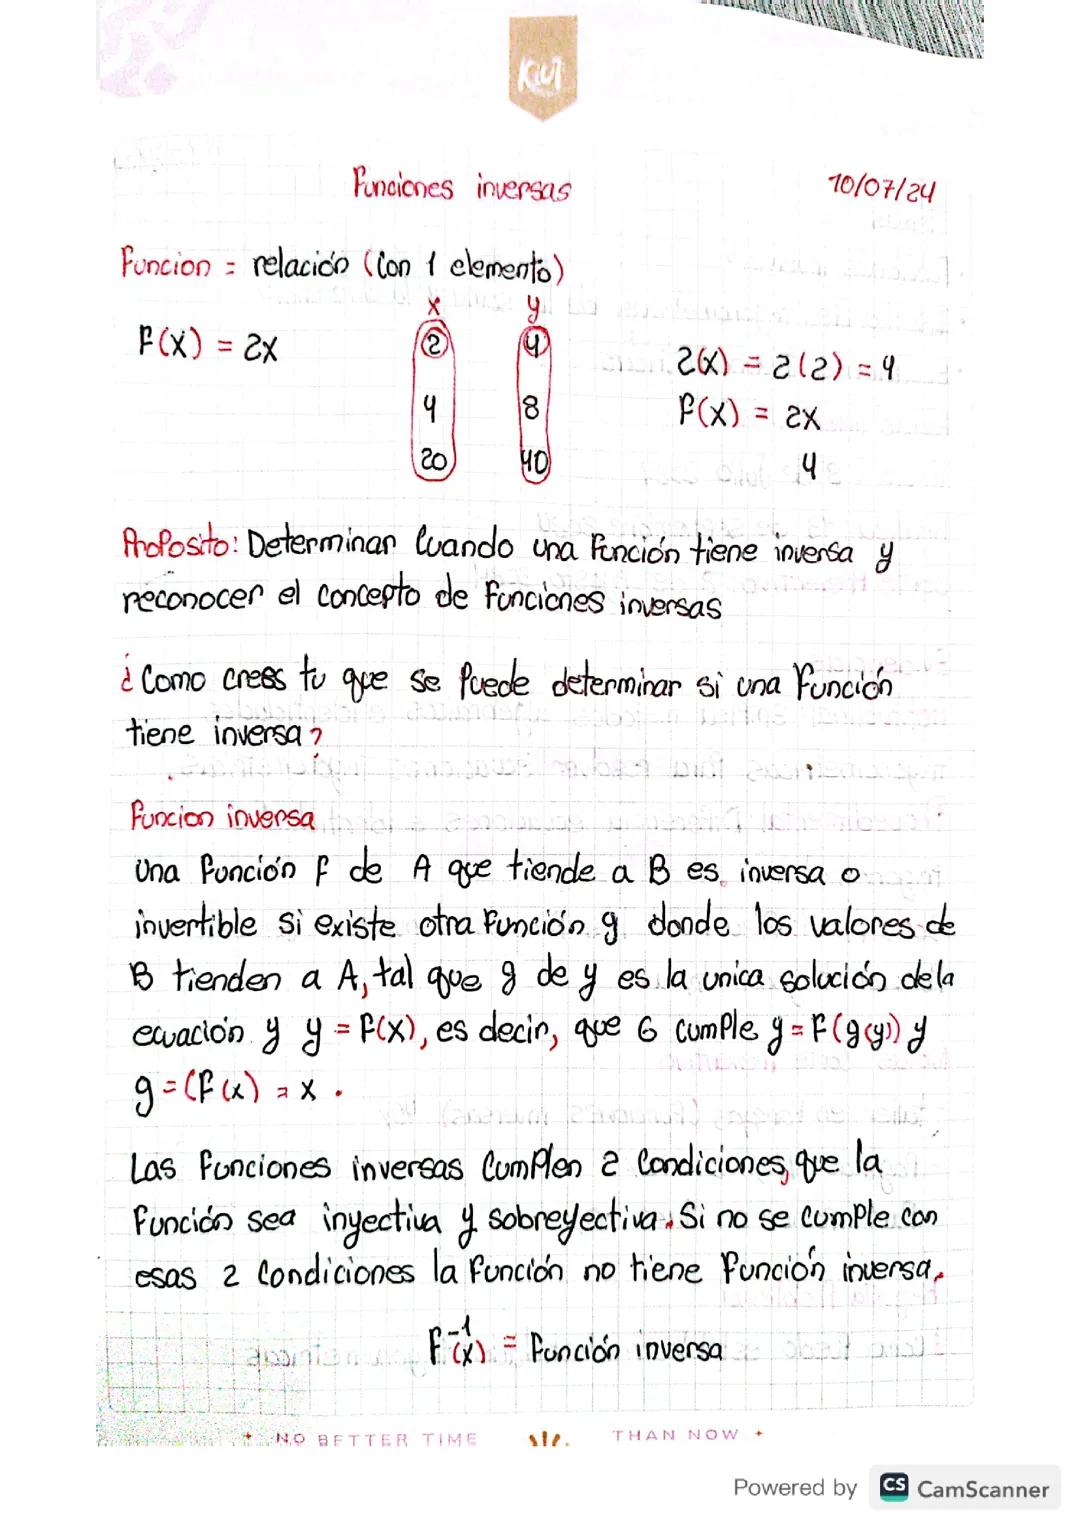 KIUT
Funciones inversas 10/07/24
Funcion = relación (Con 1 elemento)
x y
F(x) = 2x 2 4 2(x) = 2(2) = 4
4 8 F(x) = 2x
20 40 4
Proposito: Determinar Cuando una Función tiene inversa y
reconocer el concepto de Funciones inversas
¿Como crees tu que se Puede determinar si una Función
tiene inversa?
Funcion inversa
Una Función F de A que tiende a B es inversa o
invertible si existe otra Función g donde los valores de
B tienden a A, tal que g de y es la unica solución de la
ecuación y y = F(x), es decir, que G cumple y = F(g(y)) y
g = (F(x) = x.
Las Funciones inversas Cumplen 2 Condiciones, que la
Función sea inyectiva y sobreyectiva. Si no se Cumple con
esas 2 Condiciones la Función no tiene Función inversa.
F⁻¹(x) = Función inversa
NO BETTER TIME THAN NOW
Powered by CS CamScanner